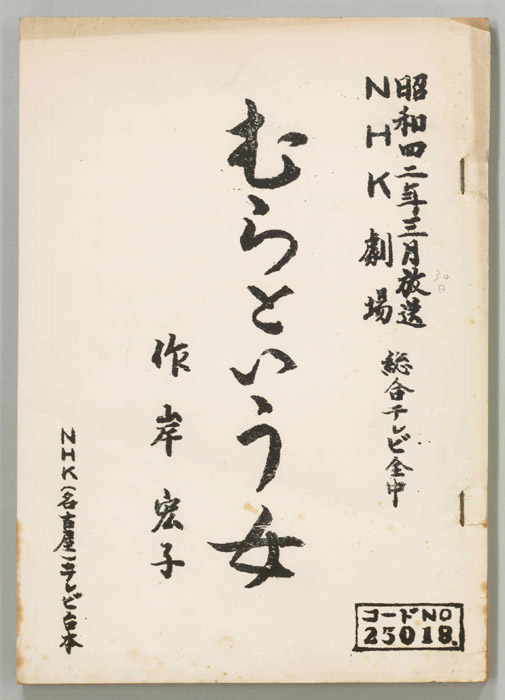 昭和四二年三月放送
30日
NHK劇場
総合テレビ全中
むらという女
作 岸 宏子
NHK(名古屋)テレビ台本
コードNO
25018.